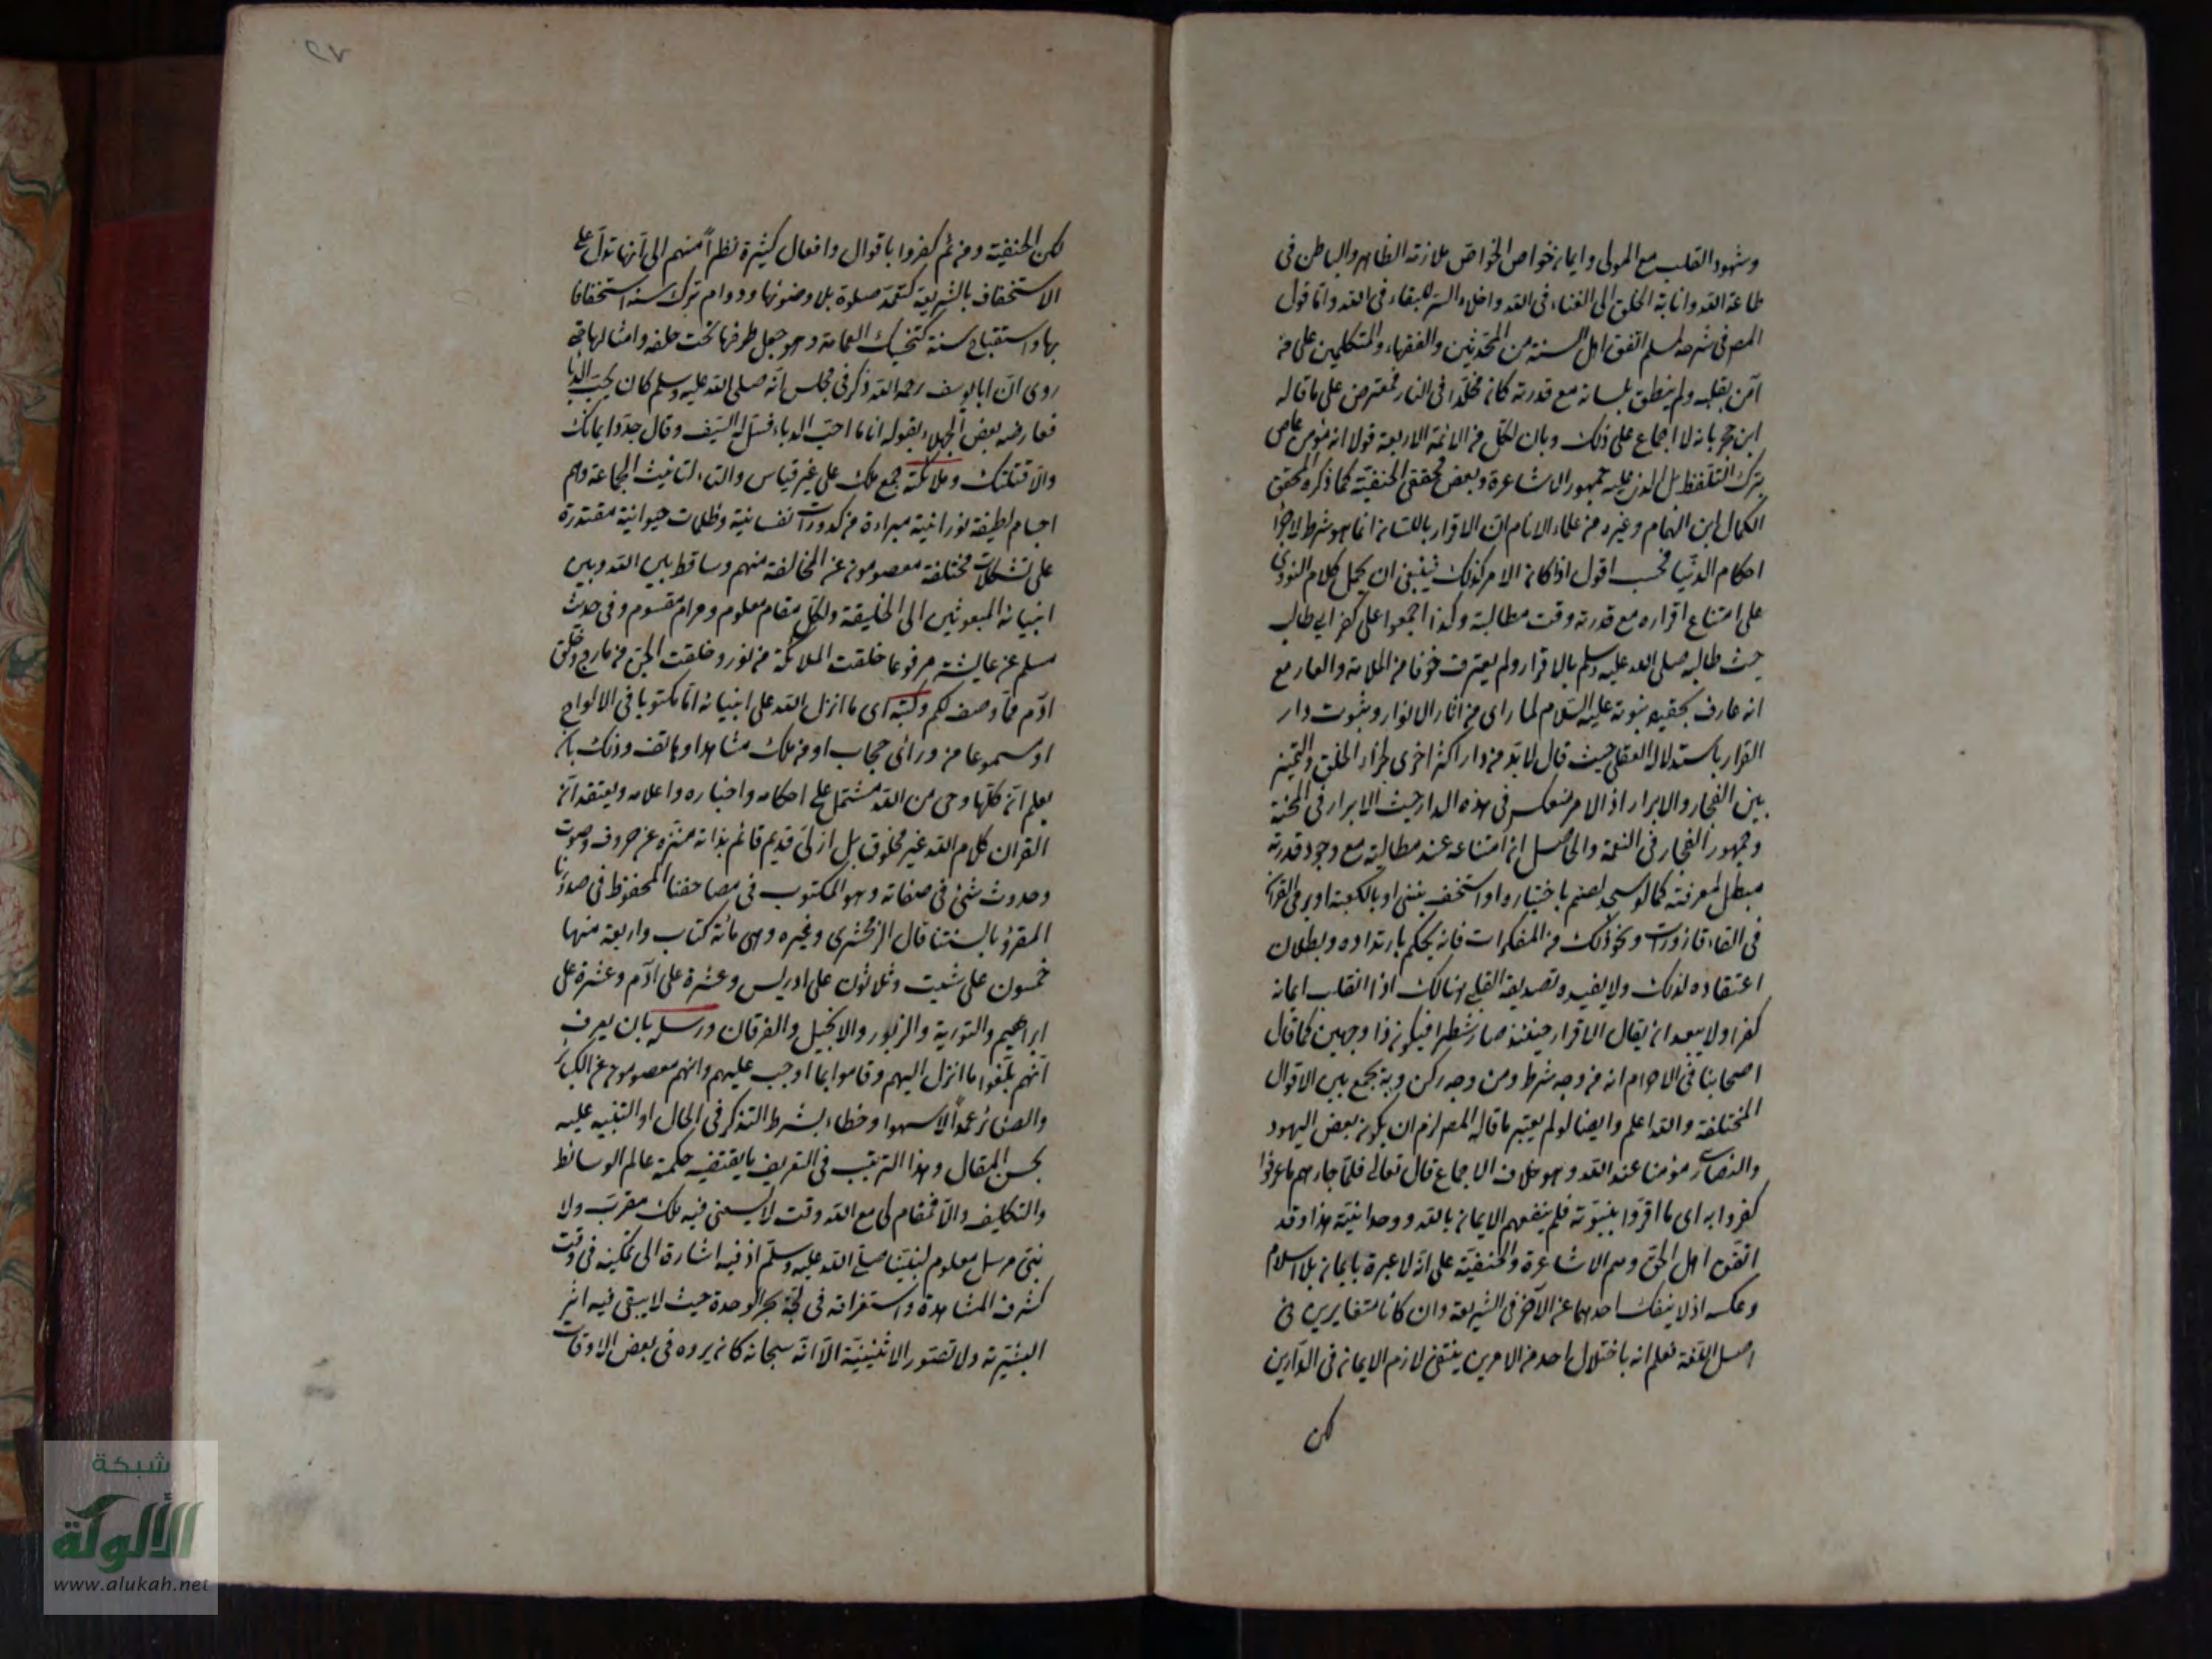 وشهود القلب مع المولى وايمان خواص الخواص ملازمة الظاهر والباطن فى
طاعة الله وانابة الخلق الى الفناء فى الله واخلاء السر للبقاء فى الله واما قول
المص فى شرحه لمسلم اتفق اهل السنة من المحدثين والفقهاء والمتكلمين على من
آمن بقلبه ولم ينطق بلسانه مع قدرته كان مخلدا فى النار فمعترض على ما قاله
ابن حجر بانه لا اجماع على ذلك وبان لكل من الائمة الاربعة قولا انه مؤمن عاص
بترك التلفظ بل الذى عليه جمهور الاشاعرة وبعض محققى الحنفية كما ذكره المحقق
الكمال ابن الهمام وغيره من علماء الانام ان الاقرار باللسان انما هو شرط لاجراء
احكام الدنيا فحسب اقول اذا كان الامر كذلك فينبغى ان يحمل كلام النووى
على امتناع اقراره مع قدرته وقت مطالبة وكذا اجمعوا على كفر ابى طالب
حيث طالبه صلى الله عليه وسلم بالاقرار ولم يعترف خوفا من الملامة والعار مع
انه عارف بحقيه نبوته عليه السلام لما راى من اثار الانوار وثبوت دار
القرار باستدلاله العقلى حيث قال لابد من دار اخرى لجزاء الخلق والتميز
بين الفجار والابرار اذ الامر منعكس فى هذه الدار حيث الابرار فى المحنة
وجمهور الفجار فى النعمة والحاصل ان امتناعه عند مطالبته مع وجود قدرته
مبطل لمعرفته كما لو سجد لصنم باختياره او استخف بنبى او بالكعبة او رمى القران
فى القاء قاذورات ونحو ذلك من المكفرات فانه يحكم بارتداده وبطلان
اعتقاده لذلك ولا يفيده تصديقه القلبى هنالك اذا انقلب ايمانه
كفرا ولا يبعد ان يقال الاقرار حينئذ صار شطرا فيكون ذا وجهين كما قال
اصحابنا فى الاحرام انه من وجه شرط ومن وجه ركن وبه يجمع بين الاقوال
المختلفة والله اعلم وايضا لو لم يعتبر ما قاله المص لزم ان يكون بعض اليهود
والنصارى مؤمنا عند الله وهو خلاف الاجماع قال تعالى فلما جاءهم ما عرفوا
كفروا به اى ما اقروا بنبوته فلم ينفعهم الايمان بالله ووحدانيته هذا وقد
اتفق اهل الحق وهم الاشاعرة والحنفية على انه لا عبرة بايمان بلا اسلام
وعكسه اذ لا ينفك احدهما عن الآخر فى الشريعة وان كانا متغايرين فى
اصل اللغة فعلم انه باختلال احد من الامرين ينتفى لازم الايمان فى الدارين
لكن
لكن الحنفية ومن ثم كفروا باقوال وافعال كثيرة نظراً منهم الى انها تدل على
الاستخفاف بالشريعة كتعمد صلوة بلا وضوء بها ودوام ترك سنة استخفافا
بها واستقباح سنة كتحنيك العمامة وهو جعل طرفها تحت حلقه وامثالها حتى
روى ان ابا يوسف رحمه الله ذكر فى مجلس انه صلى الله عليه وسلم كان يحب الدبا
فعارضه بعض الجهلاء بقوله انا ما احب الدباء فسل له السيف وقال جدد ايمانك
والا قتلتك وملائكته جمع ملك على غير قياس والتاء لتانيث الجماعة وهم
اجسام لطيفة نورانية مبراءة من كدورات نفسانية وظلمات حيوانية مقتدرة
على تشكلات مختلفة معصومون عن المخالفة منهم وسائط بين الله وبين
انبيائه المبعوثين الى الخليقة ولكل مقام معلوم ومرام مقسوم وفى حديث
مسلم عن عايشة مرفوعا خلقت الملائكة من نور وخلقت الجن من مارج وخلق
ادم مما وصف لكم وكتبه اى ما انزل الله على انبيائه اما مكتوبا فى الالواح
او مسموعا من ورائى حجاب او من ملك مشاهد او هاتف وذلك بان
يعلم ان كلها وحى من الله مشتمل على احكامه واخباره واعلامه ويعتقد ان
القران كلام الله غير مخلوق بل ازلى قديم قائم بذاته منزه عن حروف وصوت
وحدوث شئ فى صفاته وهو المكتوب فى مصاحفنا المحفوظ فى صدورنا
المقرؤ بالسنتنا قال الزمخشرى وغيره وهى مائة كتاب واربعة منها
خمسون على شيت وثلاثون على ادريس وعشرة على ادم وعشرة على
ابراهيم والتورية والزبور والانجيل والفرقان ورسله بان يعرف
انهم بلغوا ما انزل اليهم وقاموا بما اوجب عليهم وانهم معصومون عن الكبائر
والصغائر عمداً لا سهوا وخطاء بشرط التذكر فى الحال او التنبيه عليه
بحسن المقال وهذا الترتيب فى التعريف ما يقتضيه حكمة عالم الوسائط
والتكليف والا فمقام لى مع الله وقت لا يسعنى فيه ملك مقرب ولا
نبى مرسل معلوم لنبينا صلى الله عليه وسلم اذ فيه اشارة الى تمكينه فى وقت
كشوف المشاهدة واستغراقه فى لجة بحر الوحدة حيث لا يبقى فيه اثر
البشرية ولا تصور الاثنينية الا انه سبحانه كان يرده فى بعض الاوقات
شبكة
الألوكة
www.alukah.net